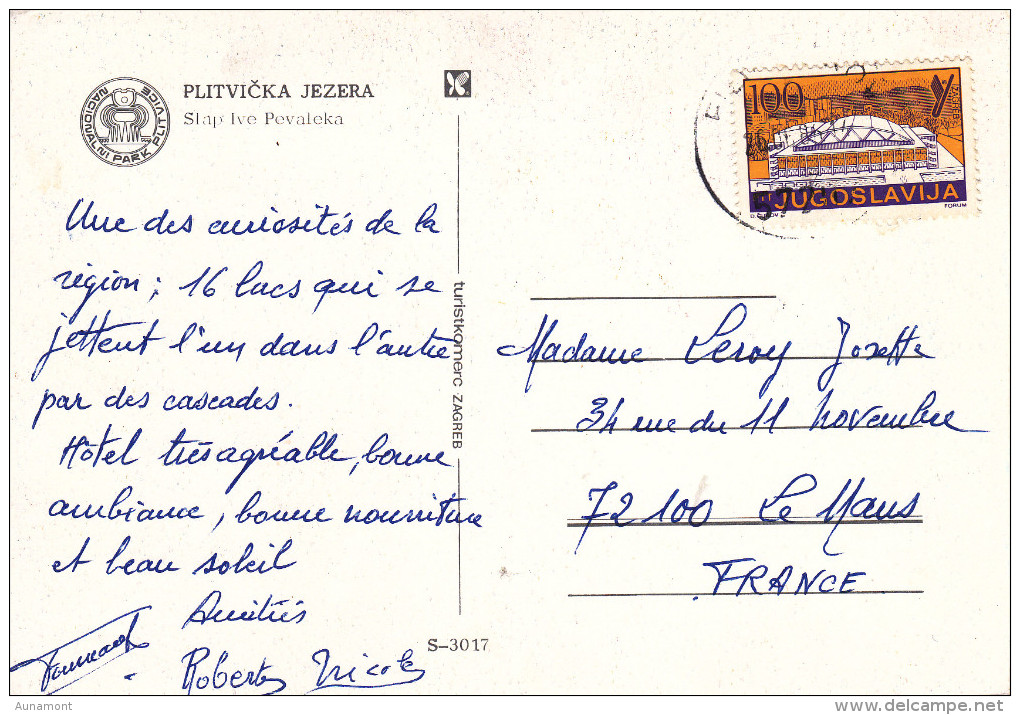 NACIONALNI PARK PLITVICE
PLITVIČKA JEZERA
Slap Ive Pevaleka
Une des curiosités de la
région ; 16 lacs qui se
jettent l'un dans l'autre
par des cascades.
Hôtel très agréable, bonne
ambiance, bonne nourriture
et beau soleil
Amitiés
Robert Nicole
turistkomerc ZAGREB
S-3017
100
ZAGREB
JUGOSLAVIJA
FORUM
Madame Leroy Josette
34 rue du 11 Novembre
72100 Le Mans
FRANCE
Aunamont
delcampe.net